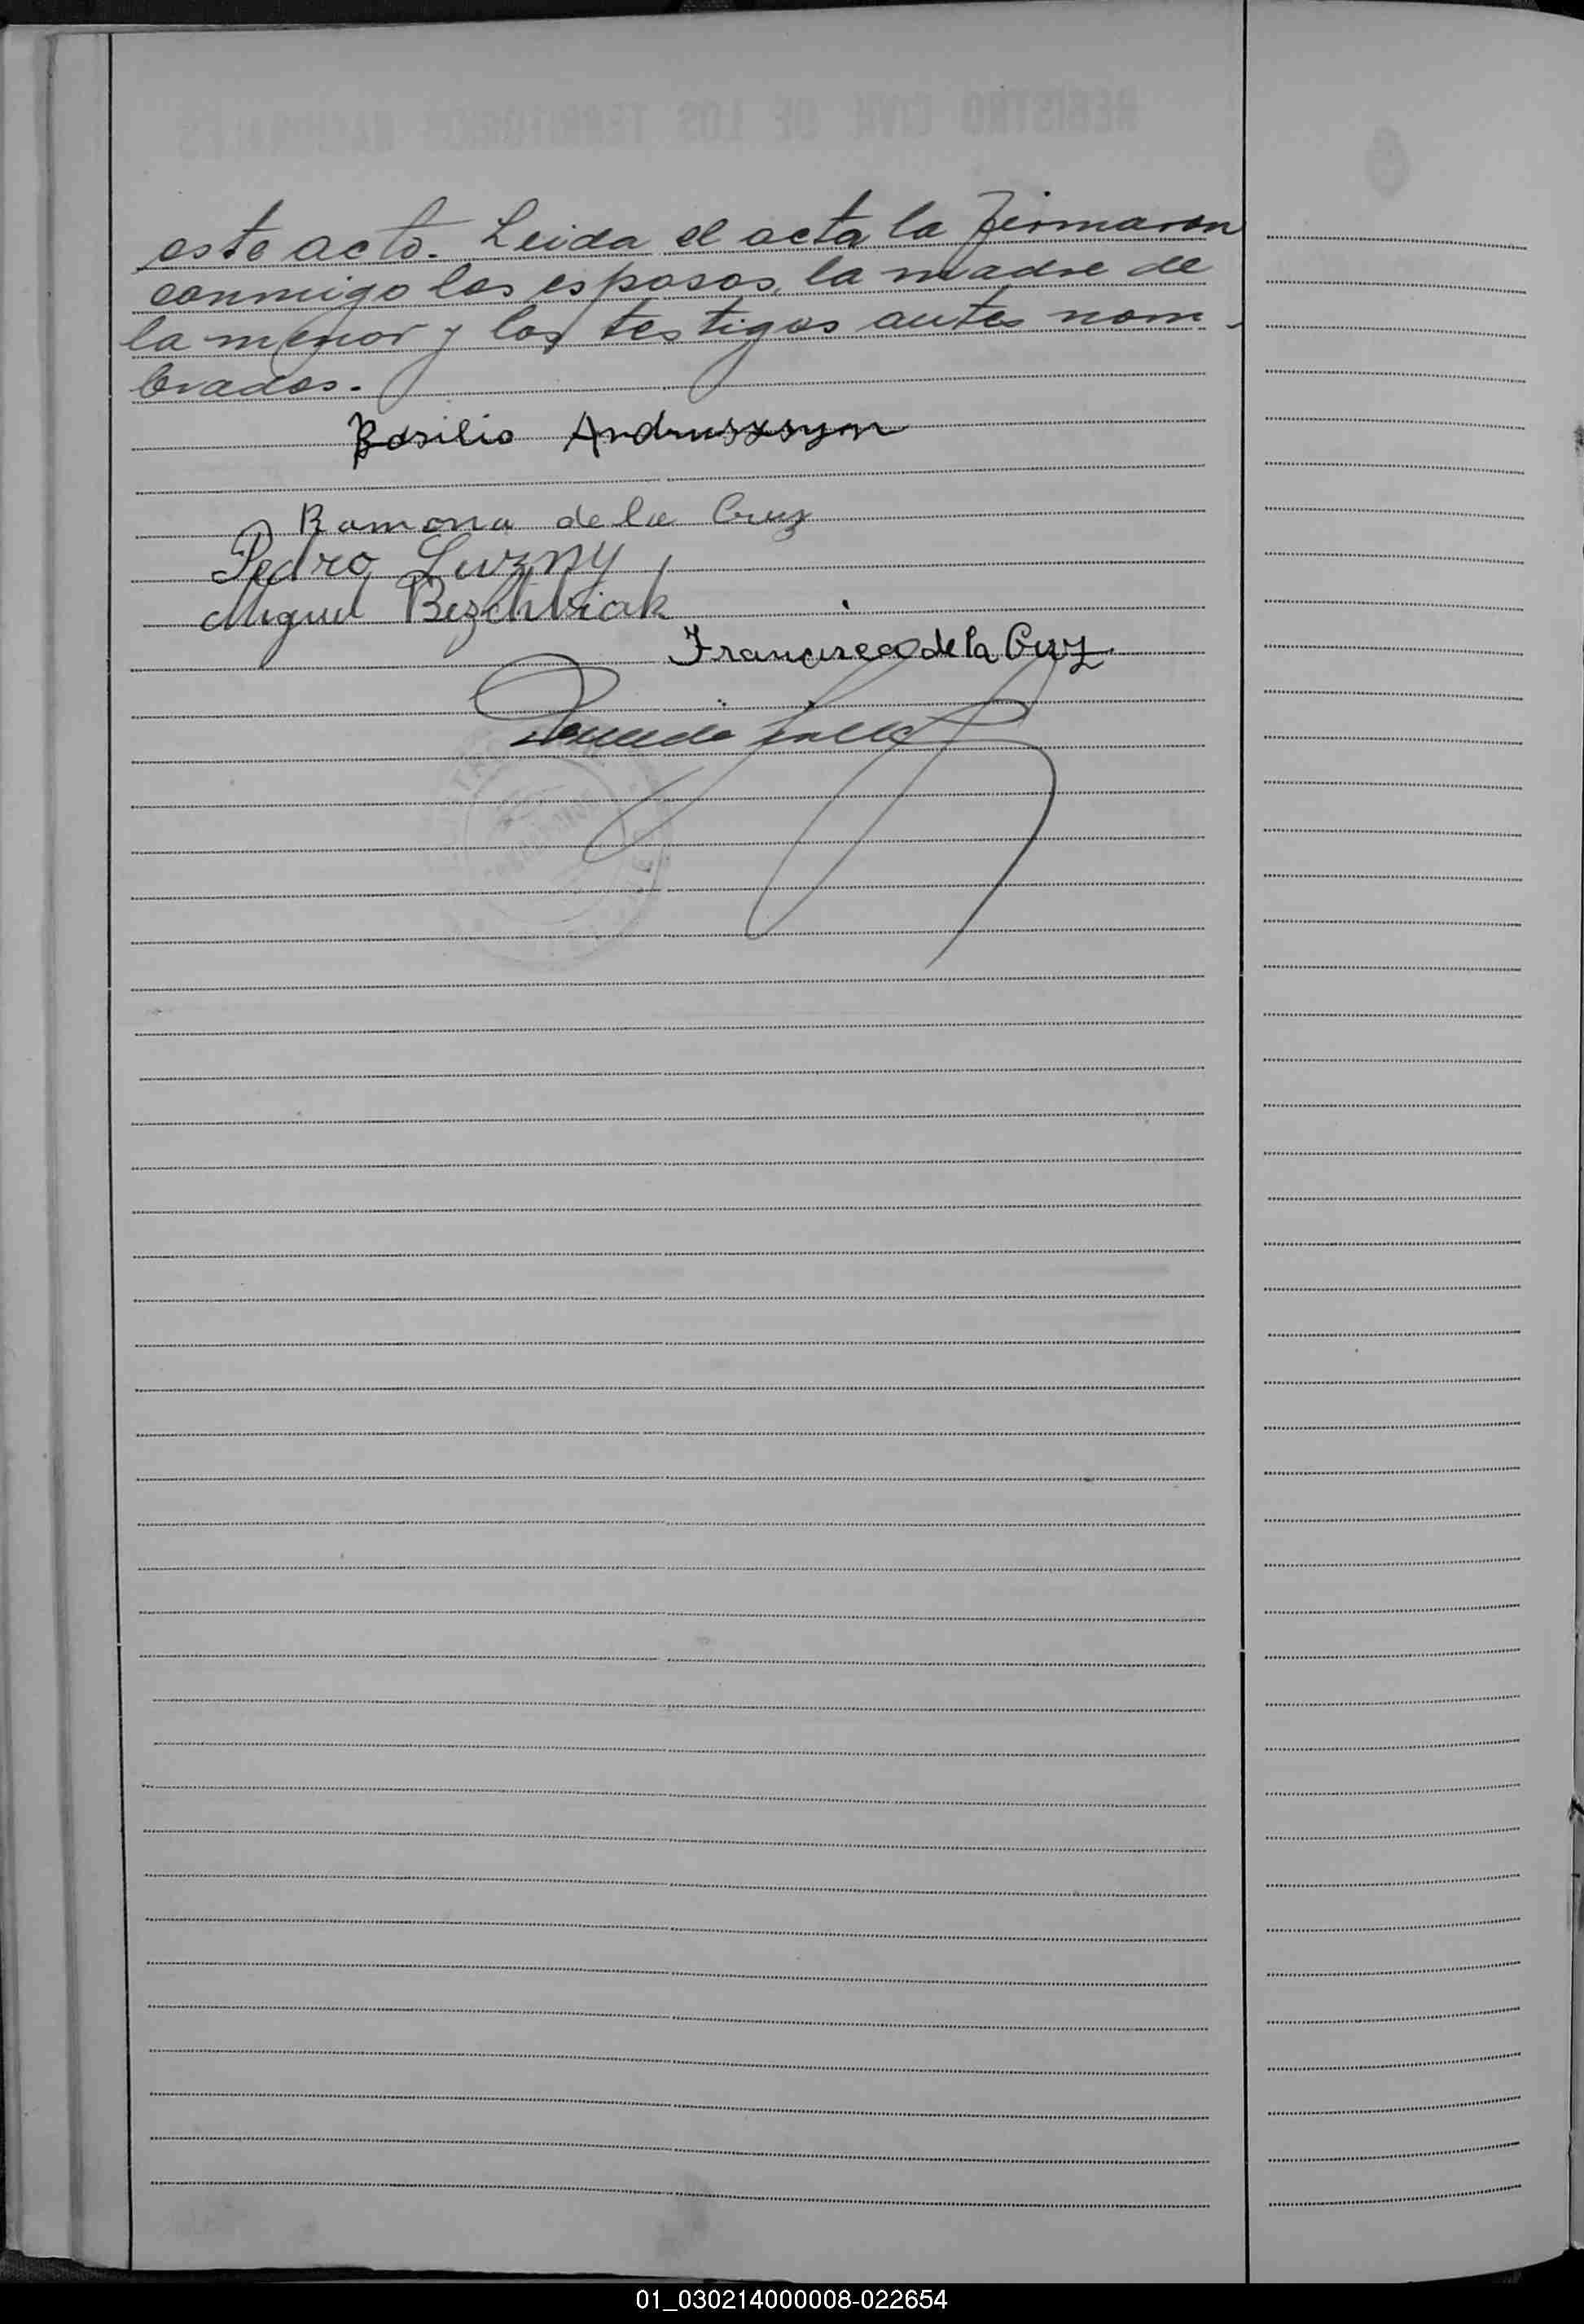 este acto. Leida el acta la firmaron
conmigo los esposos, la madre de
la menor y los testigos antes nom-
brados.
Basilio Andruszsyn
Ramona de la Cruz
Pedro Luzny
Miguel Bezchliak
Francisca de la Cruz
01_030214000008-022654